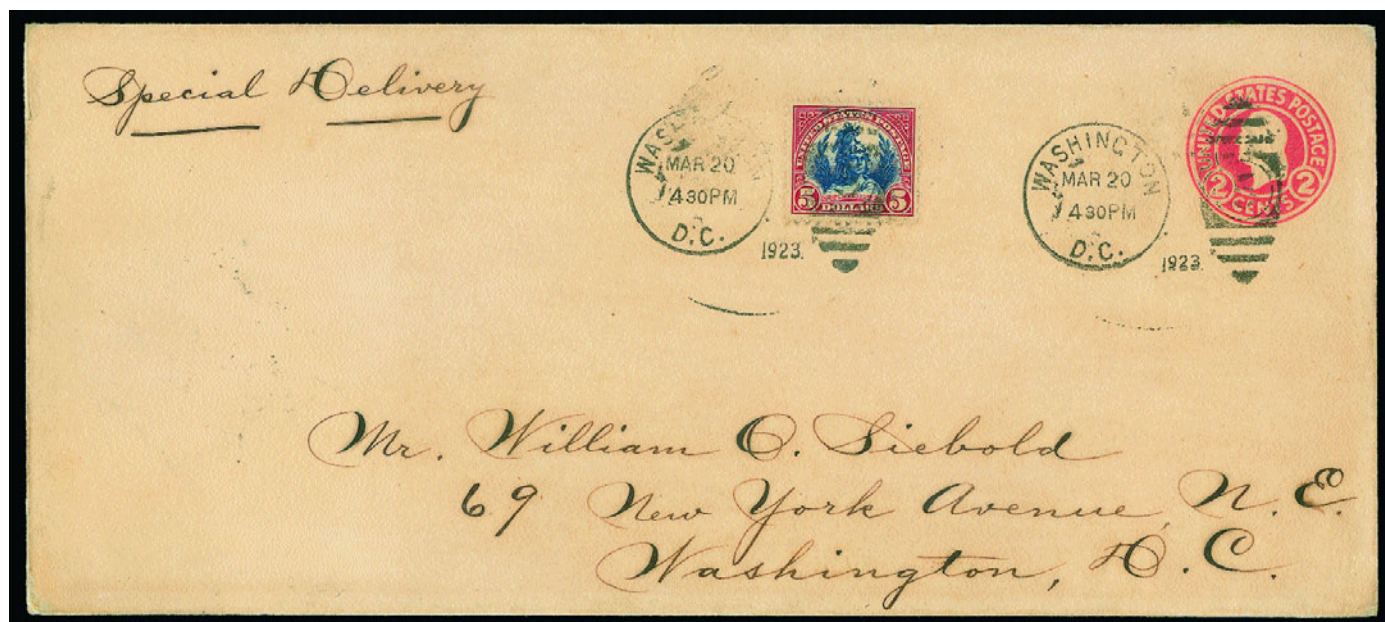 Special Delivery
WASHINGTON
MAR 20
430PM
D.C.
1923.
UNITED STATES POSTAGE
5 DOLLARS 5
WASHINGTON
MAR 20
430PM
D.C.
1923.
UNITED STATES POSTAGE
2 CENTS 2
Mr. William O. Siebold
69 New York Avenue, N. E.
Washington, D. C.